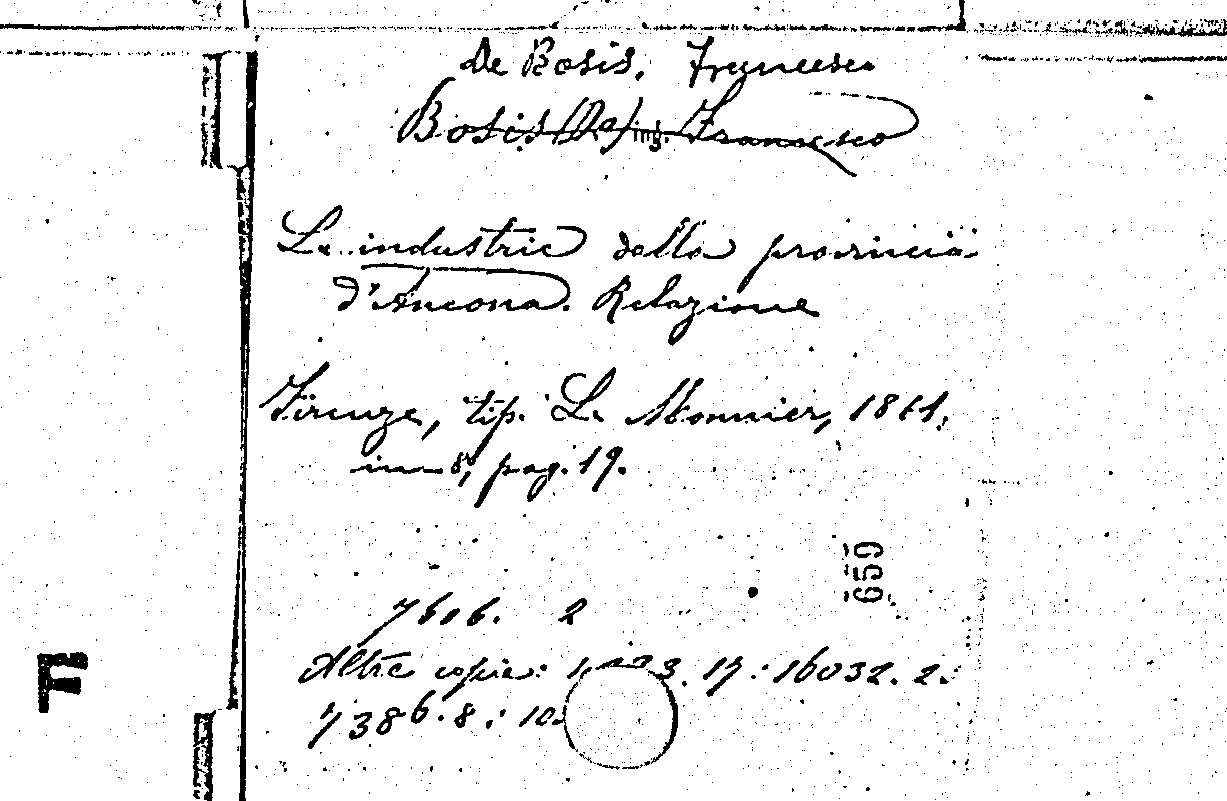 de Bosis, Francesco
Bosis (De) ing. Francesco
Le industrie della provincia
d'Ancona. Relazione
Firenze, tip. Le Monnier, 1861,
in-8, pag. 19.
659
7606. 2
Altre copie: 3. 17.: 16032. 2.
7386. 8.: 10.
F